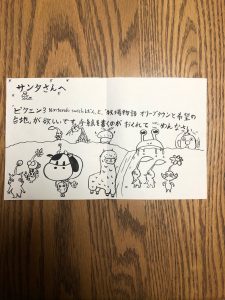 サンタさんへ
「ピクミン3 Nintendo Switchばん」と「牧場物語 オリーブタウンと希望の
台地」が欲しいです。手紙を書くのがおくれてごめんなさい。